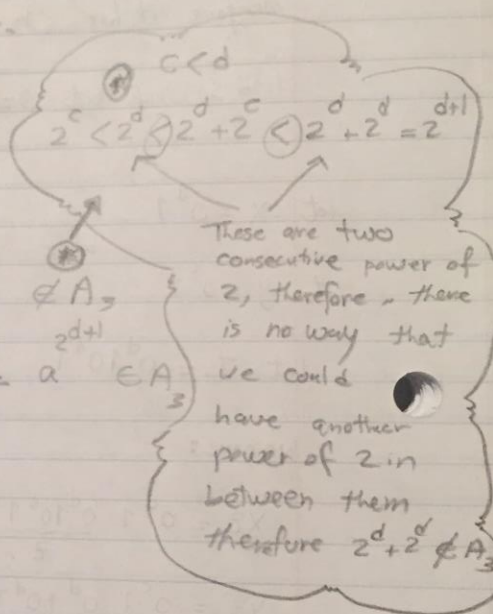 c < d
2^c < 2^d < 2^d + 2^c < 2^d + 2^d = 2^{d+1}
These are two
consecutive power of
∉ A_3
2, therefore, there
2^{d+1}
is no way that
a ∈ A_3
we could
have another
power of 2 in
between them
therefore 2^d + 2^d ∉ A_3